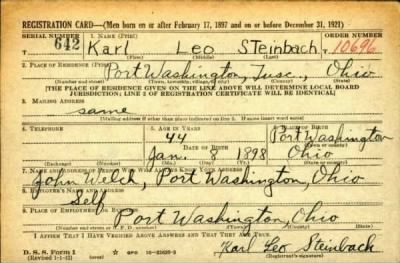 REGISTRATION CARD—(Men born on or after February 17, 1897 and on or before December 31, 1921)
SERIAL NUMBER 1. NAME (Print) ORDER NUMBER
642 Karl Leo Steinbach T 10696
(First) (Middle) (Last)
2. PLACE OF RESIDENCE (Print)
Port Washington, Tusc., Ohio
(Number and street) (Town, township, village, or city) (County) (State)
[THE PLACE OF RESIDENCE GIVEN ON THE LINE ABOVE WILL DETERMINE LOCAL BOARD
JURISDICTION; LINE 2 OF REGISTRATION CERTIFICATE WILL BE IDENTICAL]
3. MAILING ADDRESS
same
[Mailing address if other than place indicated on line 2. If same insert word same]
4. TELEPHONE 5. AGE IN YEARS 6. PLACE OF BIRTH
44 Port Washington
DATE OF BIRTH (Town or county)
Jan. 8 1898 Ohio
(Exchange) (Number) (Mo.) (Day) (Yr.) (State or country)
7. NAME AND ADDRESS OF PERSON WHO WILL ALWAYS KNOW YOUR ADDRESS
John Welch, Port Washington, Ohio
8. EMPLOYER'S NAME AND ADDRESS
Self
9. PLACE OF EMPLOYMENT OR BUSINESS
Port Washington, Ohio
(Number and street or R. F. D. number) (Town) (County) (State)
I AFFIRM THAT I HAVE VERIFIED ABOVE ANSWERS AND THAT THEY ARE TRUE.
D. S. S. Form 1
(Revised 1-1-42) GPO Karl Leo Steinbach
(Registrant's signature)